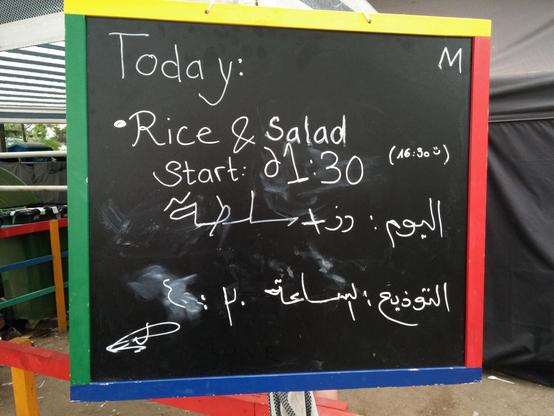 Today:
M
• Rice & Salad
Start: 21:30
(16:30 ت)
اليوم: رز +
التوزيع: الساعة ٣٠ : ٤